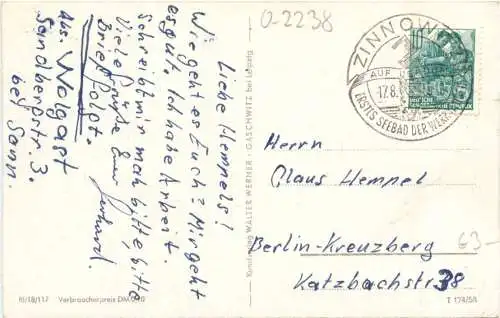 Liebe Hempels!
Wie geht es Euch? Mir geht
es gut. Ich habe Arbeit.
Schreibt mir mal bitte, bitte
Viele Grüße Euer Gerhard.
Brief folgt.
Abs. Wolgast
Sandbergstr. 3.
bei Sann.
O-2238
ZINNOW
AUF
17.8.
ERSTES SEEBAD DER WERK
Herrn
Claus Hempel
Berlin-Kreuzberg
Katzbachstr 38
63-
Kunstverlag WALTER WERNER · GASCHWITZ bei Leipzig
III/18/117 Verbraucherpreis DM 0,20
T 174/58